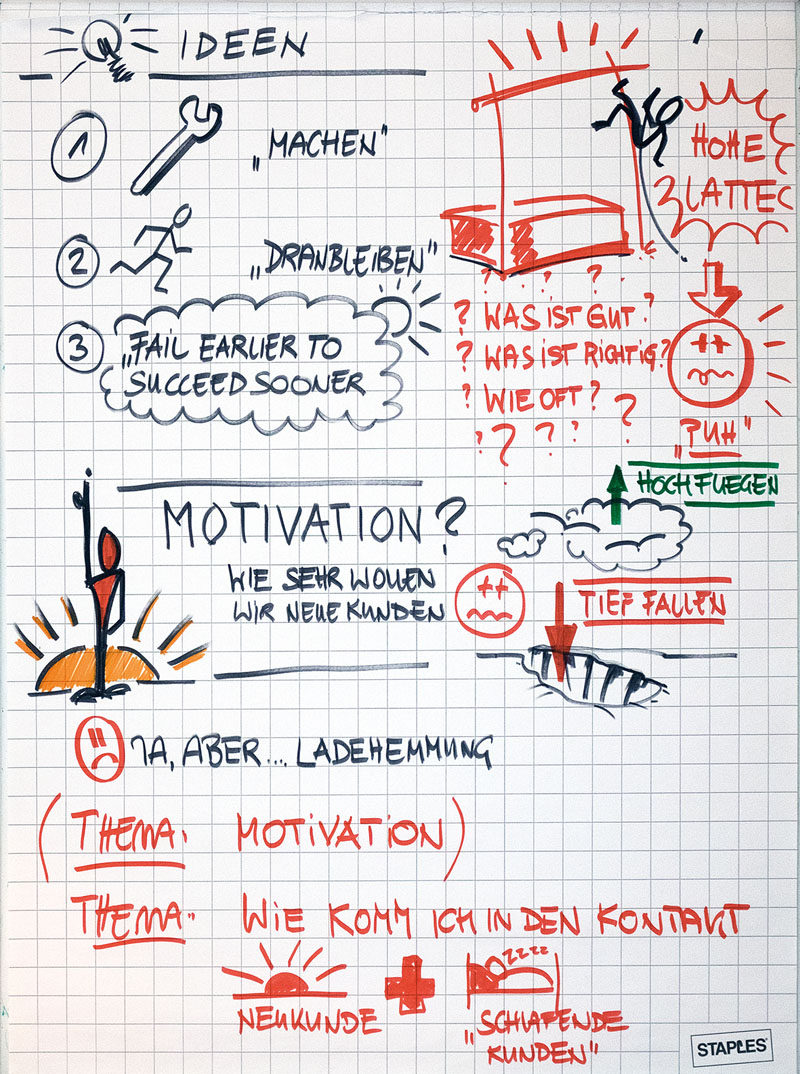 IDEEN
1 „MACHEN"
2 „DRANBLEIBEN"
3 „FAIL EARLIER TO
SUCCEED SOONER
HOHE
LATTE
? WAS IST GUT?
? WAS IST RICHTIG?
? WIE OFT? ?
? ? ? ?
„PUH"
MOTIVATION?
WIE SEHR WOLLEN
WIR NEUE KUNDEN
HOCH FLIEGEN
TIEF FALLEN
JA, ABER... LADEHEMMUNG
(THEMA: MOTIVATION)
THEMA: WIE KOMM ICH IN DEN KONTAKT
NEUKUNDE
+
ZZZZ
„SCHLAFENDE
KUNDEN"
STAPLES